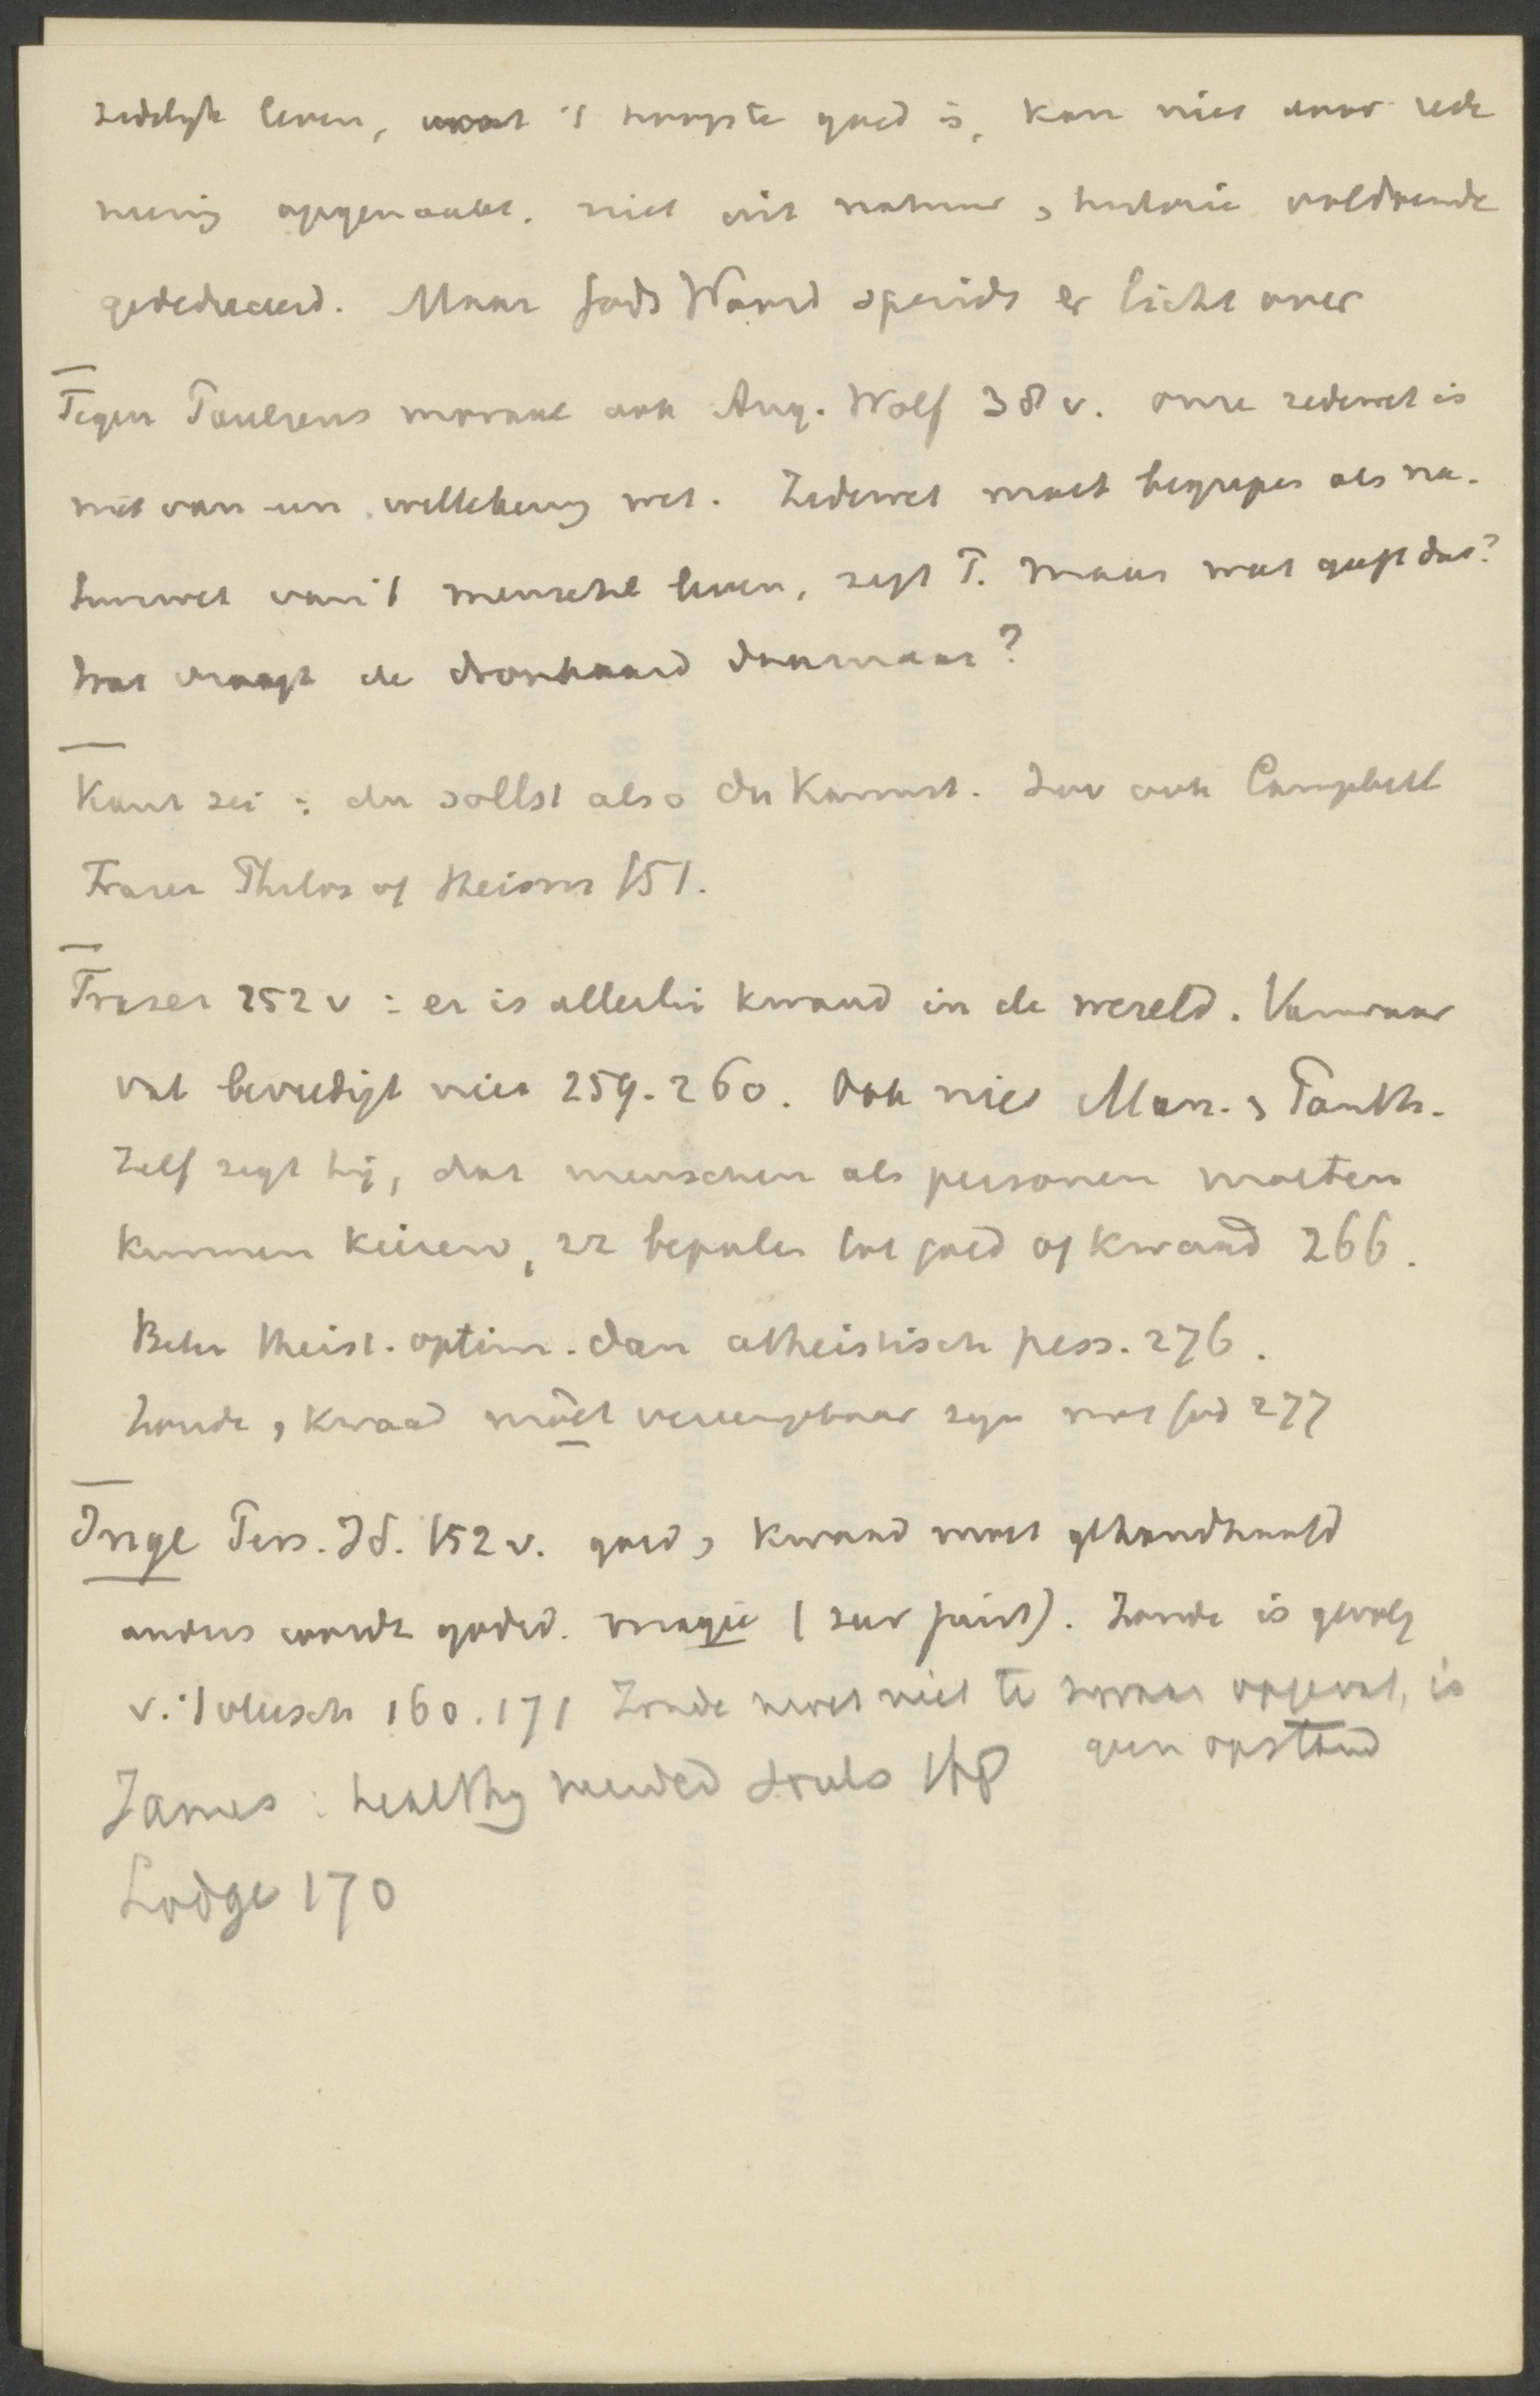 zedelijk leven, wat 't hoogste goed is, kan niet door rede
niet uit natuur , historie voldoende
gededuceerd. Maar Gods Woord spreidt er licht over
Tegen Paulsens moraal ook Aug. Wolf 38 v. onze zedewet is
niet van een wet. Zedewet moet begrepen als na-
tuurwet van 't menschel leven, zegt P. maar wat geeft dat?
Wat vraagt de dronkaard daarnaar?
Kant zei : du sollst also du kannst. Zoo ook Campbell
Fraser Philos of theism 151.
Fraser 252 v : er is allerlei kwaad in de wereld. Vanwaar
bevredigt niet 259. 260. Ook niet Man. , Panth.
Zelf zegt hij, dat menschen als personen moeten
kunnen kiezen, zz bepalen tot goed of kwaad 266.
Beter theist. optim. dan atheistisch pess. 276.
Zonde , kwaad móet vereenigbaar zijn met God 277
Inge Pers. Id. 152 v. goed , kwaad moet gehandhaafd
anders wordt godsd. magie (zeer juist). Zonde is gevolg
v. 't vleesch 160. 171 Zonde niet te zwaar opgevat, is
geen opstand
James : healthy minded souls 148
Lodge 170